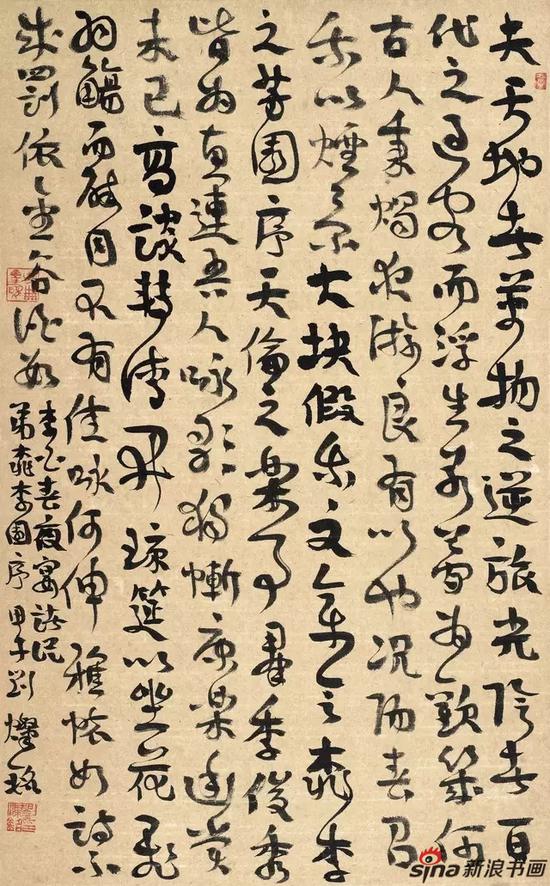 夫天地者萬物之逆旅光陰者百
代之過客而浮生若夢為歡幾何
古人秉燭夜游良有以也況陽春召
我以煙景大块假我文章會桃李
之芳園序天倫之樂事羣季俊秀
皆為惠連吾人咏歌獨慚康樂幽賞
未已高談轉清開瓊筵以坐花飛
羽觴而醉月不有佳咏何伸雅懷如詩不
成罰依金谷酒數
李白春夜宴諸從
弟桃李園序 甲午劉燦銘
sina新浪书画